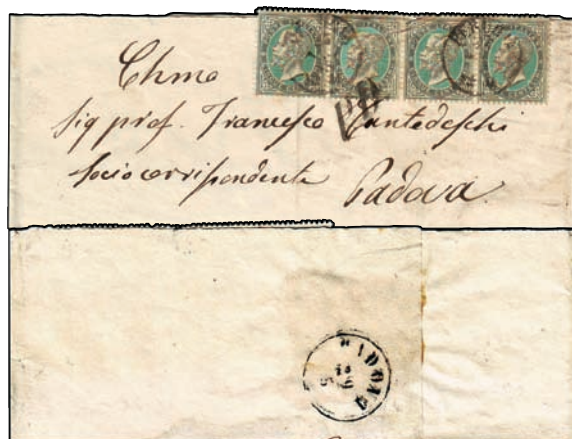 Chmo
Sig prof. Francesco Zantedeschi
Socio corrispondente Padova
PD
PADOVA